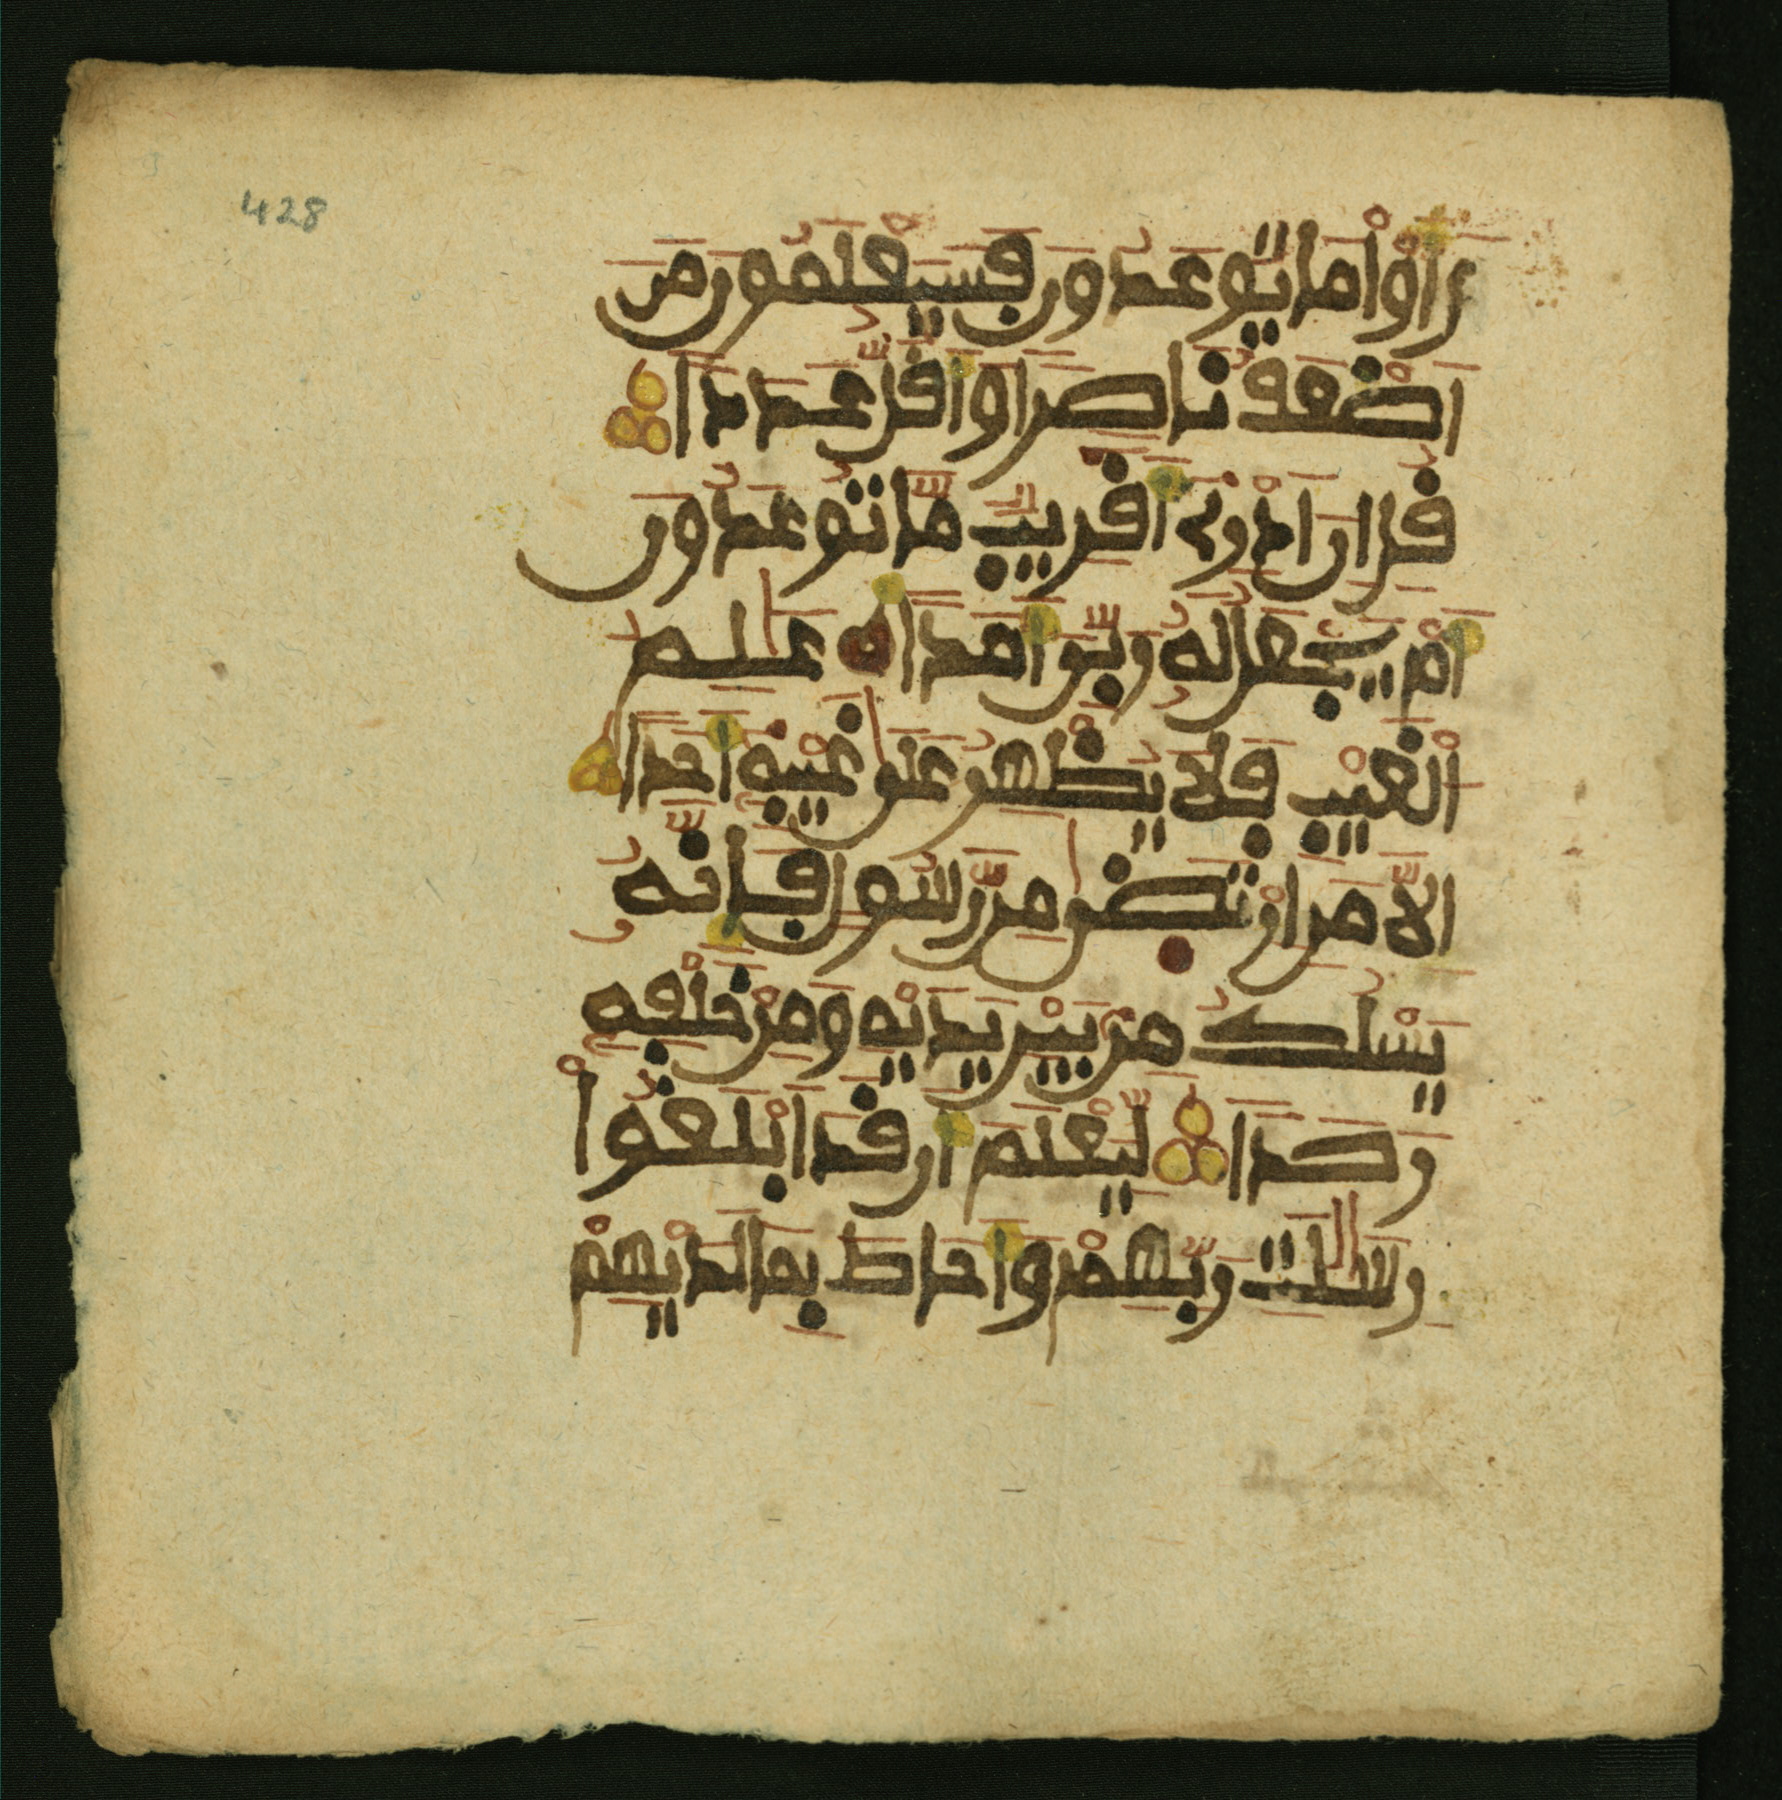 428
رَأَوْاْ مَا يُوعَدُونَ فَسَيَعْلَمُونَ مَنْ
اَضْعَفُ نَاصِراً وَأَقَلُّ عَدَداً
قُلِ انَ اَدْرِے أَقَرِيبٌ مَّا تُوعَدُونَ
أَمْ يَجْعَلُ لَهُ رَبِّے أَمَداً عَٰلِمُ
اُ۬لْغَيْبِ فَلَا يُظْهِرُ عَلَىٰ غَيْبِهِ أَحَداً
اِلَّا مَنِ اِ۪رْتَضَىٰ مِن رَّسُولٍ فَإِنَّهُ
يَسْلُكُ مِنۢ بَيْنِ يَدَيْهِ وَمِنْ خَلْفِهِ
رَصَداً لِّيَعْلَمَ أَن قَدَ اَبْلَغُواْ
رِسَٰلَٰتِ رَبِّهِمْ وَأَحَاطَ بِمَا لَدَيْهِمْ